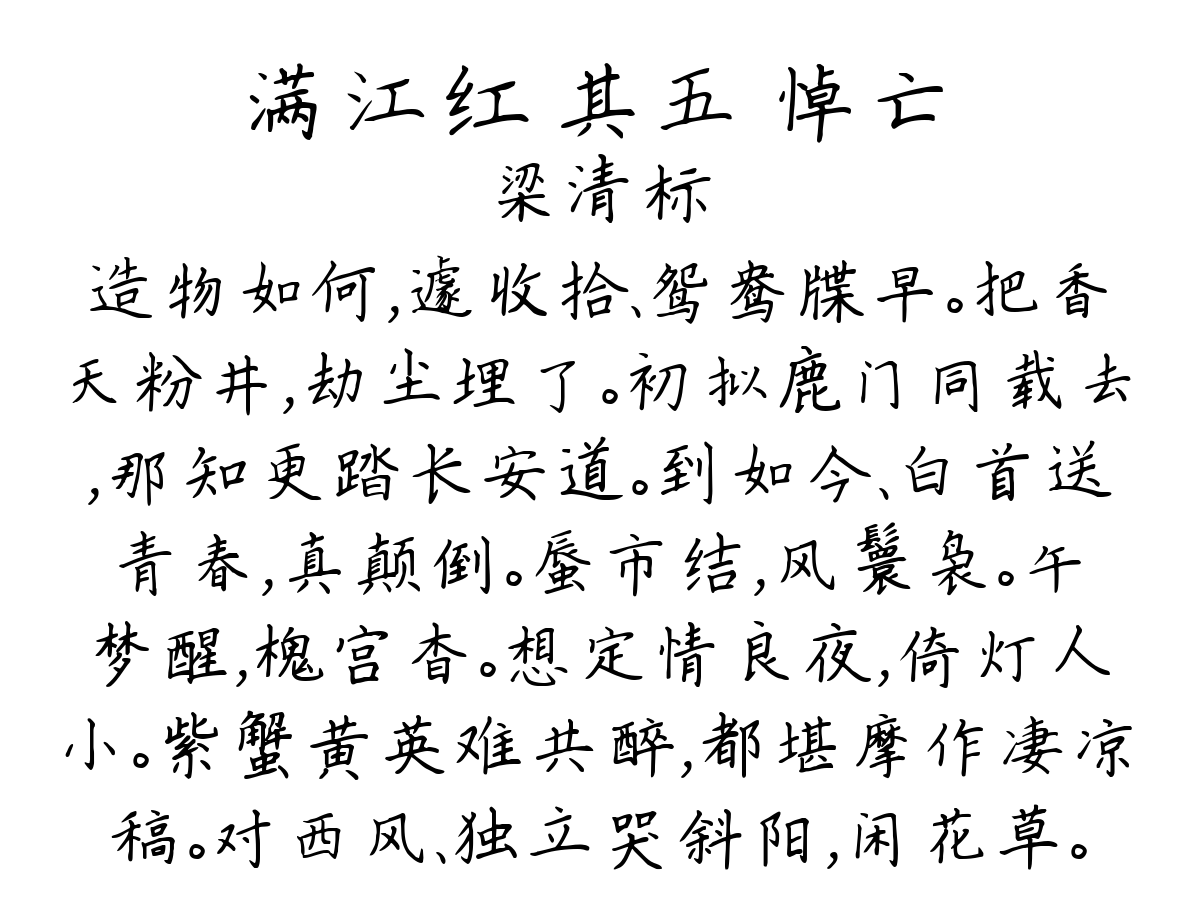 满江红 其五 悼亡
梁清标
造物如何,遽收拾、鸳鸯牒早。把香
天粉井,劫尘埋了。初拟鹿门同载去
,那知更踏长安道。到如今、白首送
青春,真颠倒。蜃市结,风鬟袅。午
梦醒,槐宫杳。想定情良夜,倚灯人
小。紫蟹黄英难共醉,都堪摩作凄凉
稿。对西风、独立哭斜阳,闲花草。